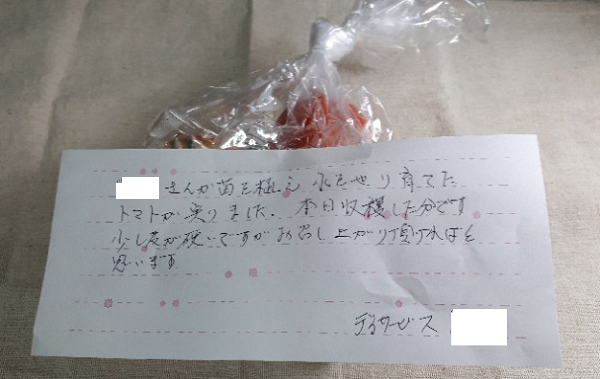 さんが苗を植え 水をやり育てた
トマトが実りました. 本日収穫した分です
少し皮が硬いですがお召し上がり頂ければと
思います
デイサービス